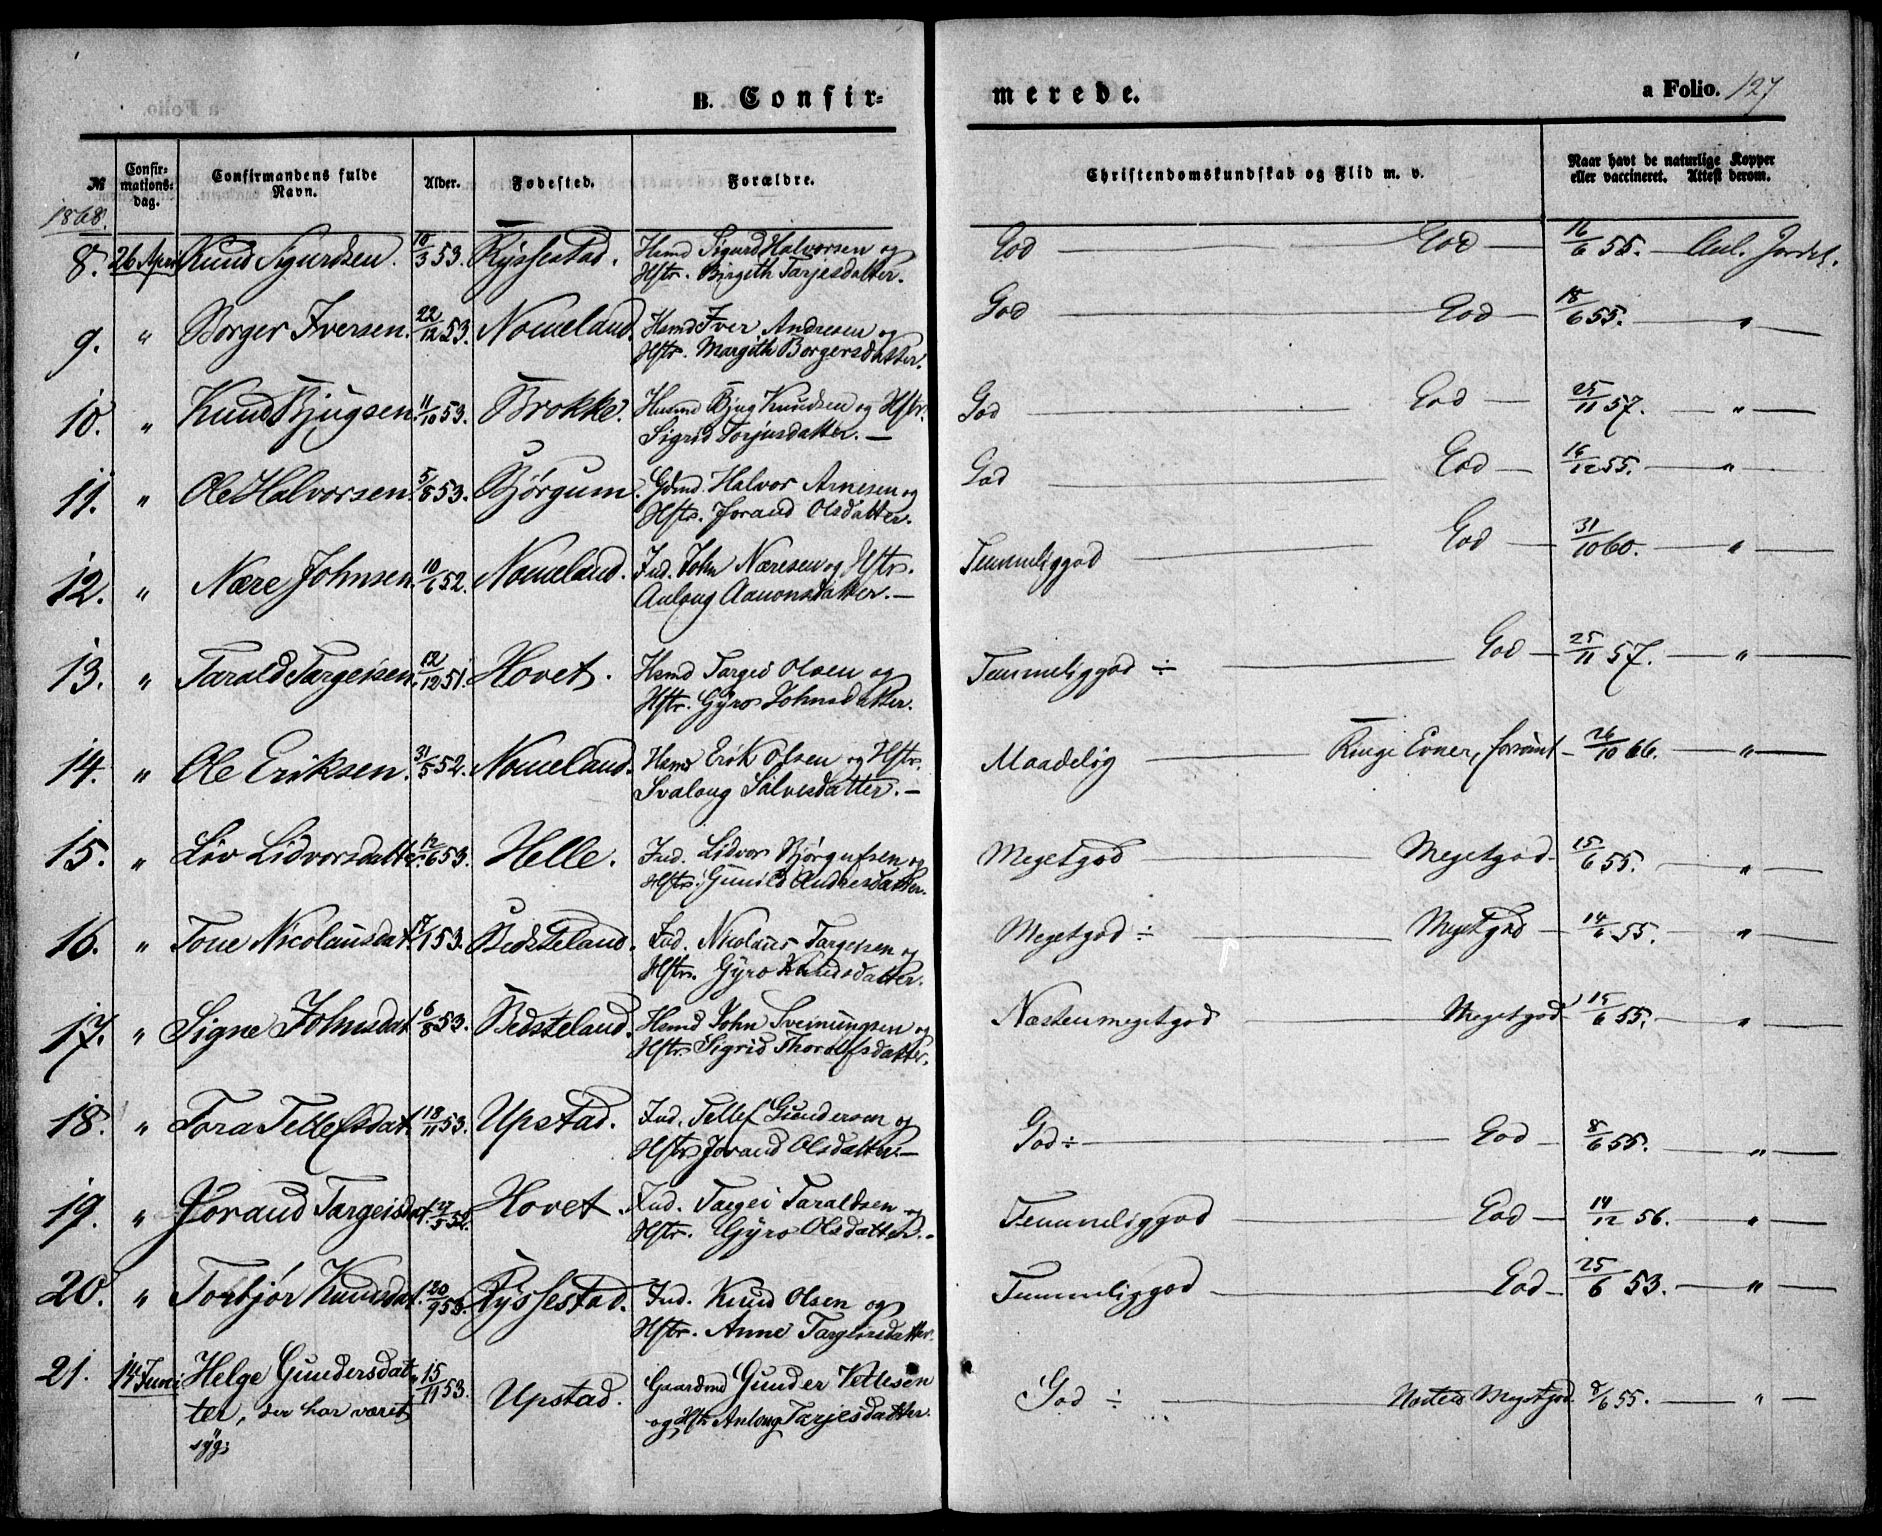 B. Confir-
merede.
a Folio. 127
№
Confir-
mations-
dag.
Confirmandens fulde
Navn.
Alder.
Fødested.
Forældre.
Christendomskundskab og Flid m. v.
Naar havt de naturlige Kopper
eller vaccineret. Attest derom.
1868.
8. 26 April Knud Sigurdsen. 10/3 53. Rysstad. Hsmd Sigurd Halvorsen og
Hstr. Birgith Tarjesdatter.
God — God — 16/6 55. — Jordet.
9. " Borger Iversen. 22/12 53. Nomeland. Hsmd Iver Andresen og
Hstr. Margith Borgersdatter.
God — God — 18/6 55. — " —
10. " Knud Bjugsen. 11/10 53. Brokke. Husmd Bjug Knudsen og Hstr.
Sigrid Torjusdatter. —
God — God — 25/11 57. — " —
11. " Ole Halvorsen. 5/8 53. Bjørgum. Gdmd. Halvor Arnesen og
Hstr. Jorand Olsdatter.
God — God — 16/12 55. — " —
12. " Nære Johnsen. 10/6 52. Nomeland. Ind. John Næresen og Hstr.
Anlaug Aanonsdatter. —
Temmeliggod — God — 31/10 60. — " —
13. " Tarald Targeisen. 12/12 51. Hovet. Hsmd Targei Olsen og
Hstr. Gyro Johnsdatter.
Temmeliggod ÷ — God — 25/11 57. — " —
14. " Ole Eriksen. 31/5 52. Nomeland. Hsmd Erik Olsen og Hstr.
Svalaug Salvesdatter. —
Maadelig — Ringe Evner, forsømt — 26/10 66. — " —
15. " Liv Lidvorsdatter 12/6 53. Helle. Ind. Lidvor Bjørgufsen og
Hstr. Gunild Andresdatter.
Megetgod — Megetgod — 15/6 55. — " —
16. " Tone Nicolausdat. 17/1 53. Besteland. Ind. Nicolaus Targeisen og
Hstr. Gyro Knudsdatter.
Megetgod ÷ — Megetgod — 14/6 55. — " —
17. " Signe Johnsdat. 6/8 53. Besteland. Hsmd John Sveinungsen og
Hstr. Sigrid Thorolfsdatter.
Næstenmegetgod — Megetgod 15/6 55. — " —
18. " Tora Tellefsdat. 18/11 53. Upstad. Ind. Tellef Gundersen og
Hstr. Jorand Olsdatter. —
God ÷ — God — 8/6 55. — " —
19. " Jorand Targeisdat. 27/5 52. Hovet. Ind. Targei Taraldsen og
Hstr. Gyro Olsdatter.
Temmeliggod — God — 14/12 56. — " —
20. " Torbjør Knudsdat. 20/9 53. Rysstad. Ind. Knud Olsen og
Hstr. Anne Targeirsdatter.
Temmeliggod — God — 25/6 53. — " —
21. 14 Juni Helge Gundersdat- 15/11 53. Upstad. Gaardmd Gunder Vetlesen
ter, der har været og Hstr Anlaug Tarjesdatter.
syg.
God ÷ — Næsten Megetgod. 8/6 55. — " —